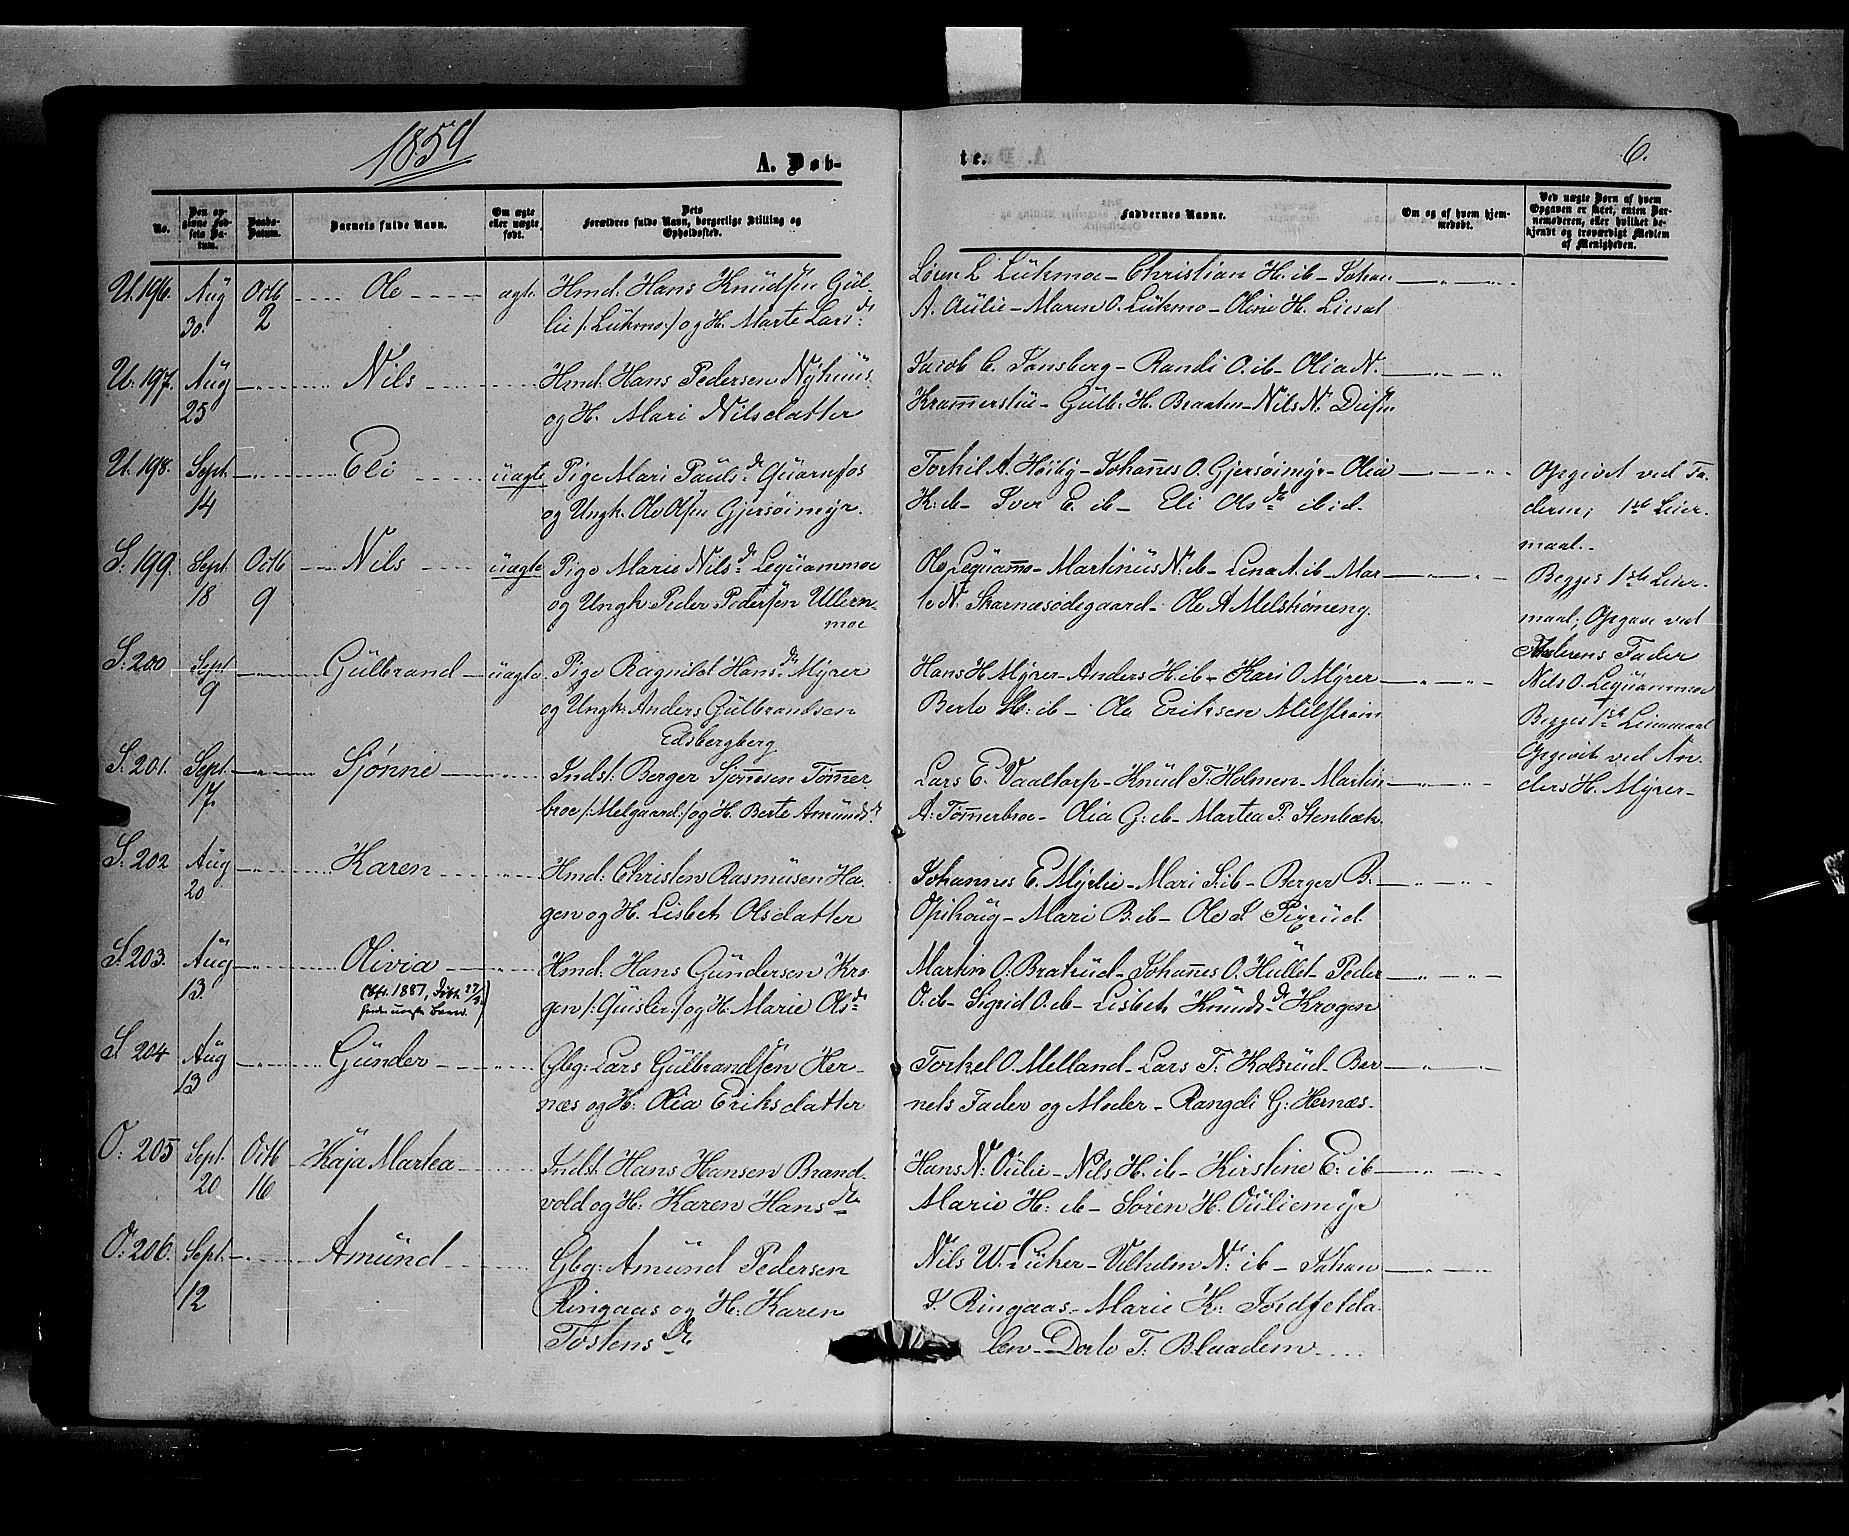 1859
A. Døb-
te.
6.
No.
Den op-
givne Fød-
sels Da-
tum.
Daabs-
Datum.
Barnets fulde Navn.
Om ægte
eller uægte
født.
Dets
Forældres fulde Navn, borgerlige Stilling og
Opholdssted.
Faddernes Navne.
Om og af hvem hjem-
medøbt.
Ved uægte Børn af hvem
Opgaven er skeet, enten Bar-
nemoderen, eller hvilket be-
kjendt og troværdigt Medlem
af Menigheden.
U. 196. Aug 30 Octb 2 Ole ægte Hmd. Hans Knudsen Gül-
lie /: Lükmo :/ og H. Marte Larsdr
Søren L. Lükmoe - Christian H. ib - Johan
A. Aulie - Maren O. Lükmo - Oline H.
U. 197. Aug 25 Nils Hmd. Hans Pedersen Nÿhuus
og H. Mari Nilsdatter
Jacob C. Tansberg - Randi O. ib - Olia N.
Kramerstüe - Gulb: H. Braaten - Nils N.
U. 198. Sept 14 Eli uægte Pige Mari Paulsdr Quarnfos
og Ungk. Ole Olsen Gjersøimÿr.
Torkil A. Høiby - Johanes O. Gjersøimÿr - Olia
K: ib - Iver E. ib - Eli Olsdr ibid.
Opgivet ved Fa-
deren; 1ste Leier-
maal.-
S. 199. Sept 18 Octb 9 Nils uægte Pige Marie Nilsdr Lequammoe
og Ungk Peder Pedersen Ullern-
moe
Ole Lequamo - Martinüs N: ib - Lina A. ib - Mar-
te N: Skarnæsødegaard - Ole A Melstrømeng.
Begges 1ste Leier-
maal; Opgave ved
Moderens Fader
Nils O. Lequammoe
S: 200 Sept 9 Gülbrand uægte Pige Ragnild Hansdr Mÿrer
og Ungk: Anders Gülbrandsen
Edsbergberg
Hans H. Mÿrer - Anders H. ib - Kari O. Mÿrer
Berte H: ib - Ole Eriksen Milstrøm
Begges 1ste Leiermaal
Opgivet ved An-
ders H. Mÿrer-
S: 201. Sept 17 Sjønne Indst. Berger Sjønnesen Tømer-
broe /: Melgaard :/ og H. Berte Amündsdr
Lars E. Vaaltorp - Knüd T. Holmen - Martin
A. Tømerbroe - Olia G: ib - Martea P. Stenbæk.
S: 202 Aug 20 Karen Hmd: Christen Rasmusen Ha-
gen og H. Lisbeth Olsdatter
Johannes E. Mÿrlie - Mari S. ib - Berger B.
Opihaug - Mari B. ib - Ole S.
S. 203. Aug 13. Olivia Hmd: Hans Gündersen Kro-
gen /: :/ og H. Marie Olsdr
Martin O. Bratrüd - Johanes O. Hüllet - Peder
O. ib - Sigrid O. ib - Lisbeth Knüdsdr Krogen
S 204 Aug 13 Günder Gbg: Lars Gülbrandsen Her-
næs og H: Olia Eriksdatter
Torkel O. Melland - Lars T. Kolsrüd - Bar-
nets Fader og Moder - Rangdi G: Hernæs.
O: 205 Sept 20 Octb 16 Kaja Martea Indst: Hans Hansen Brand-
vold og H: Karen Hansdtr
Hans N: Oülie - Nils H. ib - Kirstine E: ib
Marie H: ib - Søren H. Oüliemÿr
O: 206. Sept. 12 Amünd Gbg: Amünd Pedersen
Ringaas og H: Karen
Tostensdtr
Nils W. - Vilhelm N: ib - Johan
S. Ringaas - Marie K:
len - Dorte T. Blaadem